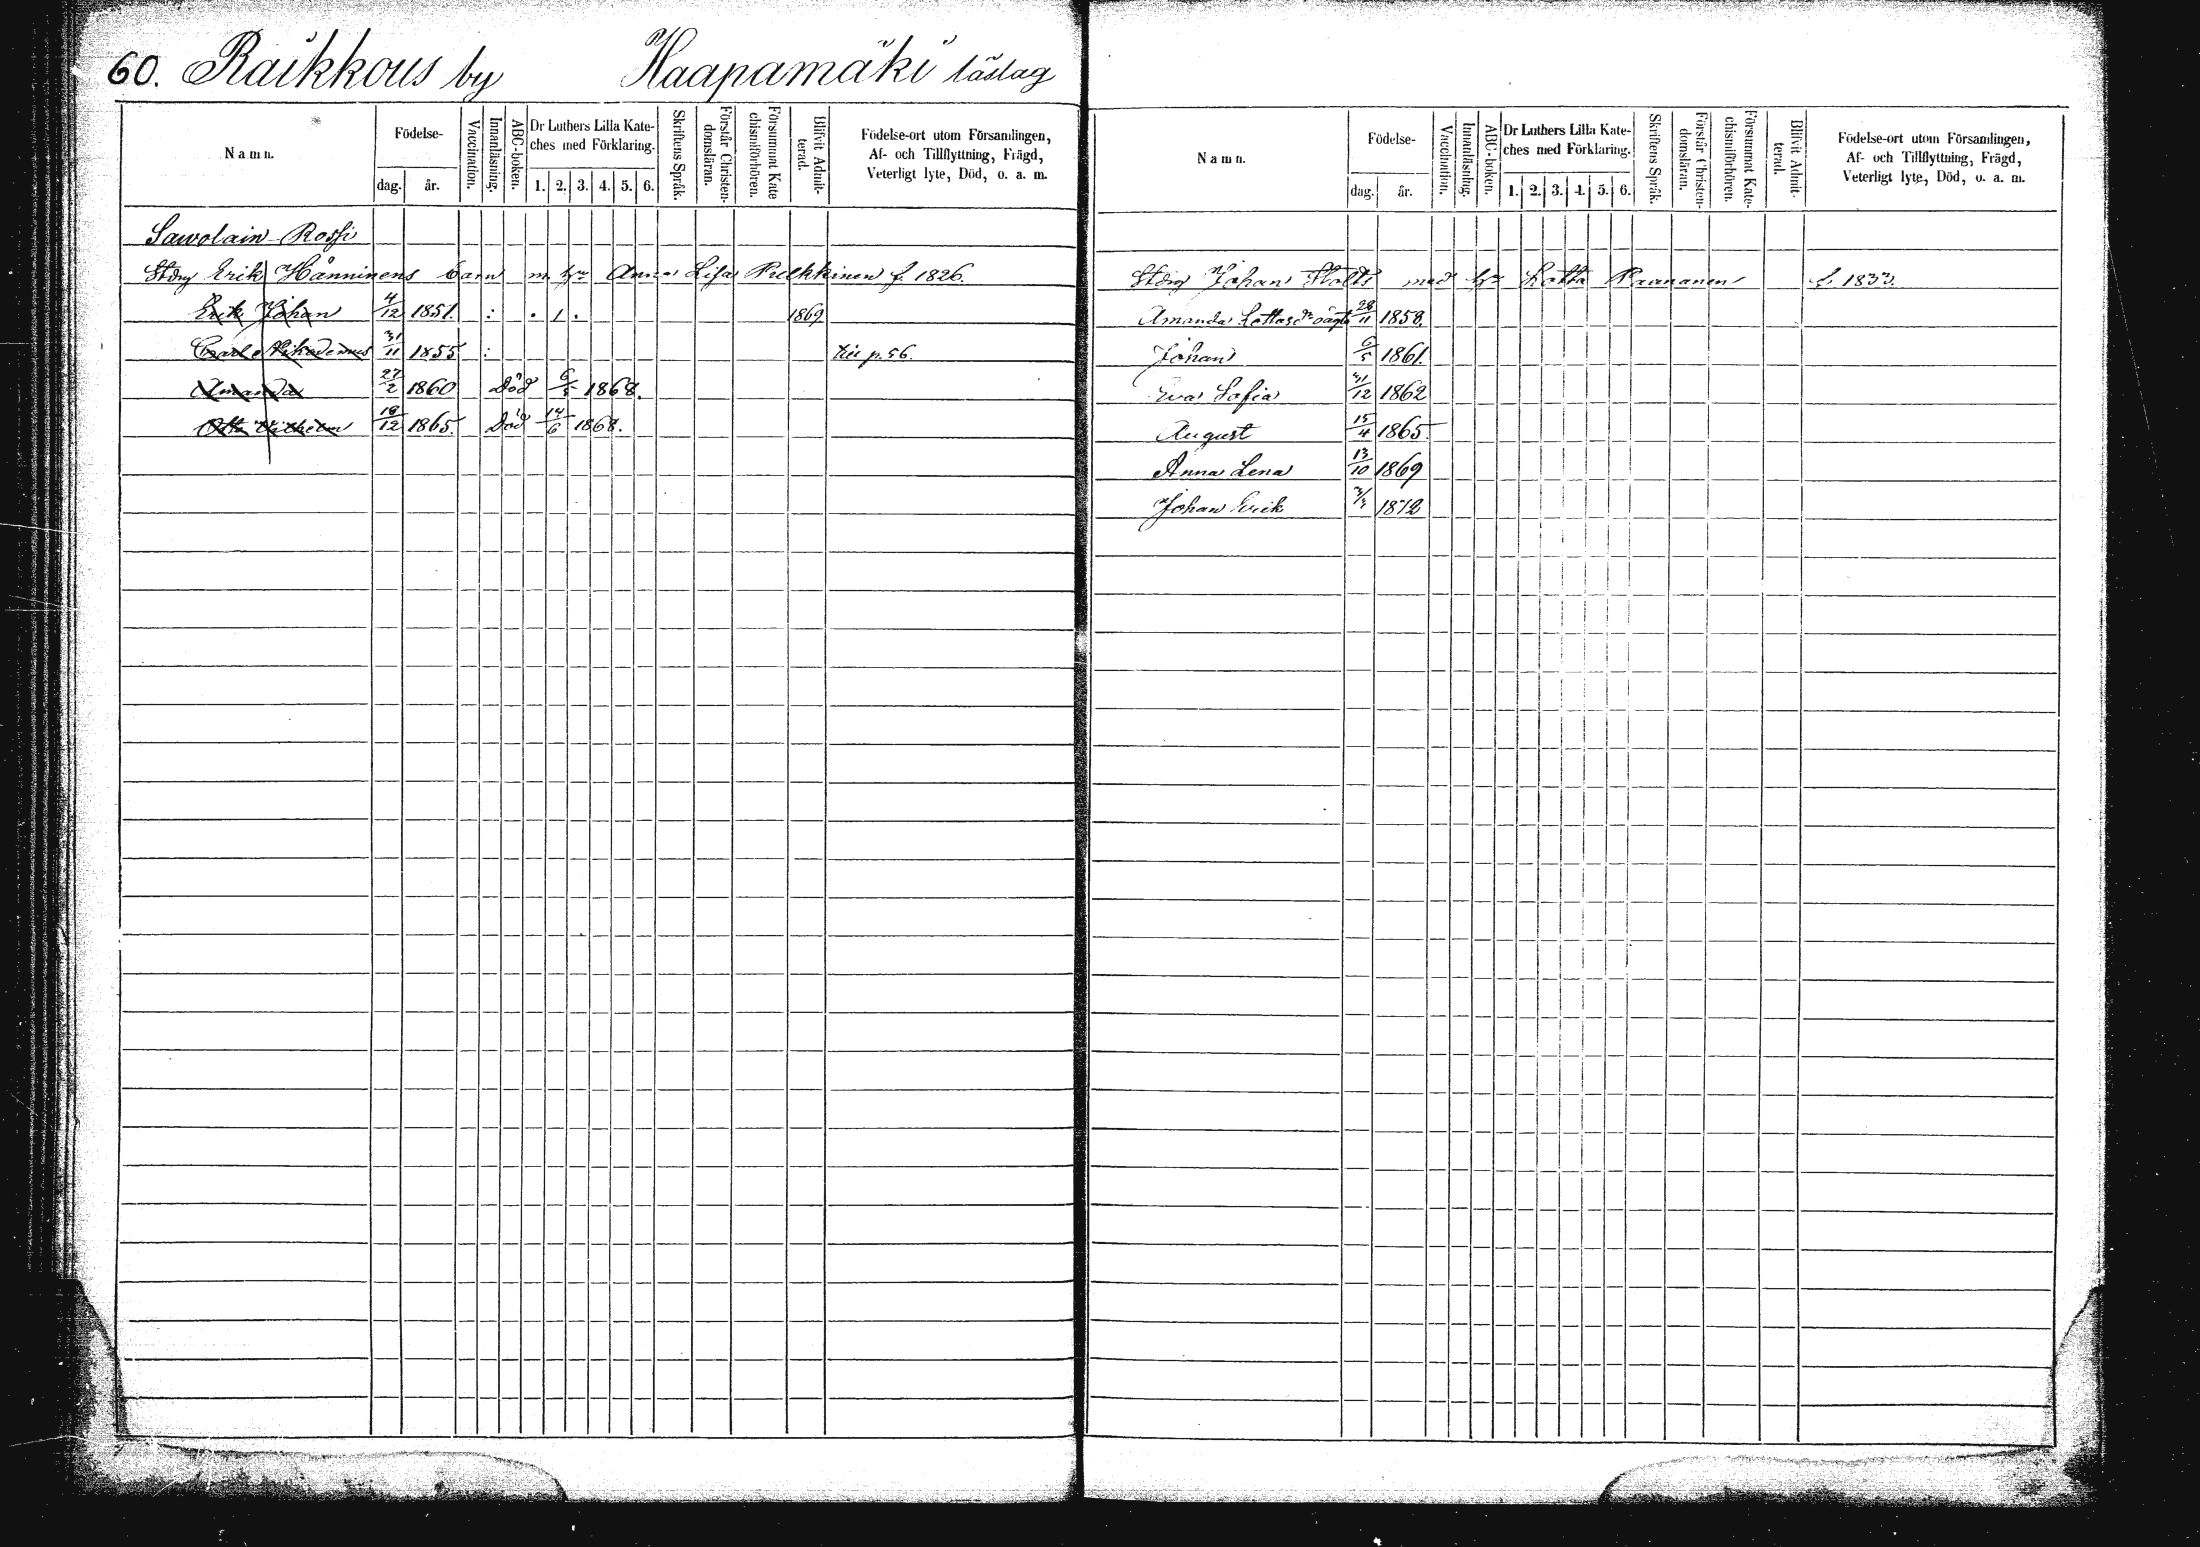 60. Raikkous by Haapamäki läslag
Namn. Födelse- dag. år. Vaccination. Innanläsning. ABC-boken. Dr Luthers Lilla Kateches med Förklaring. 1. 2. 3. 4. 5. 6. Skriftens Språk. Förstår Christendomsläran. Försummat Katechismiförhören. Blifvit Admitterad. Födelse-ort utom Församlingen, Af- och Tillflyttning, Frägd, Veterligt lyte, Död, o. a. m.
Sawolain Rossi
Stdrg Erik Hänninens barn m. hu Anna Lisa Pulkkinen f. 1826.
Erik Johan 4/12 1851. : . 1 . 1869
Carl Nikodemus 31/11 1855 : p. 56.
Amanda 27/2 1860 Död 6/5 1868.
Otto Vilhelm 19/12 1865. Död 14/6 1868.
Namn. Födelse- dag. år. Vaccination. Innanläsning. ABC-boken. Dr Luthers Lilla Kateches med Förklaring. 1. 2. 3. 4. 5. 6. Skriftens Språk. Förstår Christendomsläran. Försummat Katechismiförhören. Blifvit Admitterad. Födelse-ort utom Församlingen, Af- och Tillflyttning, Frägd, Veterligt lyte, Död, o. a. m.
Stdrg Johan med hu Lotta Paananen f. 1833.
Amanda Lottas oägta 28/11 1858.
Johan 6/5 1861.
Eva Sofia 31/12 1862
August 15/4 1865.
Anna Lena 13/10 1869
Johan Erik 1872